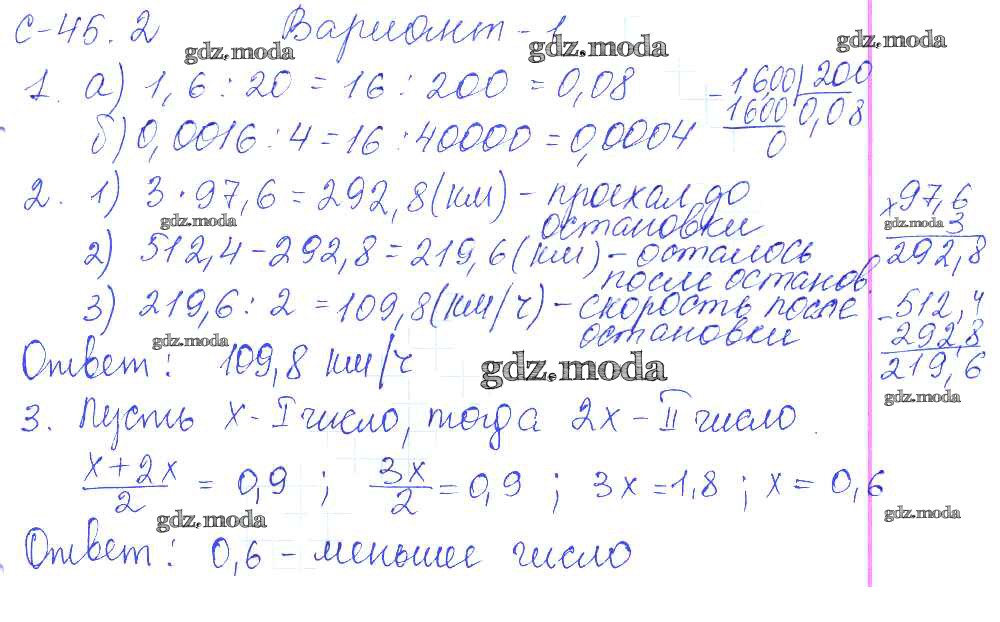 С-45.2 Вариант-1
1. а) 1,6 : 20 = 16 : 200 = 0,08
б) 0,0016 : 4 = 16 : 40000 = 0,0004
- 16,00 | 200
1600 0,08
0
2. 1) 3 · 97,6 = 292,8 (км) - проехал до
остановки
2) 512,4 - 292,8 = 219,6 (км) - осталось
после останов.
3) 219,6 : 2 = 109,8 (км/ч) - скорость после
остановки
× 97,6
3
292,8
- 512,4
292,8
219,6
Ответ: 109,8 км/ч
3. Пусть x - I число, тогда 2x - II число.
x + 2x / 2 = 0,9 ; 3x / 2 = 0,9 ; 3x = 1,8 ; x = 0,6
Ответ: 0,6 - меньшее число
gdz.moda
gdz.moda
gdz.moda
gdz.moda
gdz.moda
gdz.moda
gdz.moda
gdz.moda
gdz.moda
gdz.moda